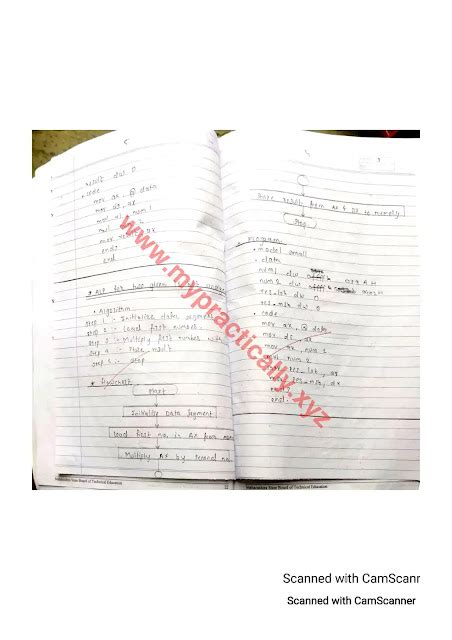 5
result dw 0
.code
mov ax, @ data
mov ds, ax
mov al, num1
mul
mov result, ax
ends
end
* ALP for two given
• Algorithm
Step 1 :- Initialize data segment
Step 2 :- Load first number.
Step 3 :- Multiply first number with
Step 4 :- Store result
Step 5 :- Stop
* Flowchart
Start
Initialize Data Segment
Load first no. in AX from mem
Multiply AX by second no.
Maharashtra State Board of Technical Education
Store result from AX & DX to memory
Stop
Program
.model small
.data
num1 dw
num2 dw
res_lst dw 0
res_msb dw 0
.code
mov ax, @ data
mov ds, ax
mov ax, num1
mul num2
mov res_lst, ax
mov res_msb, dx
ends
end.
Maharashtra State Board of Technical Education
www.mypractically.xyz
Scanned with CamScanr
Scanned with CamScanner